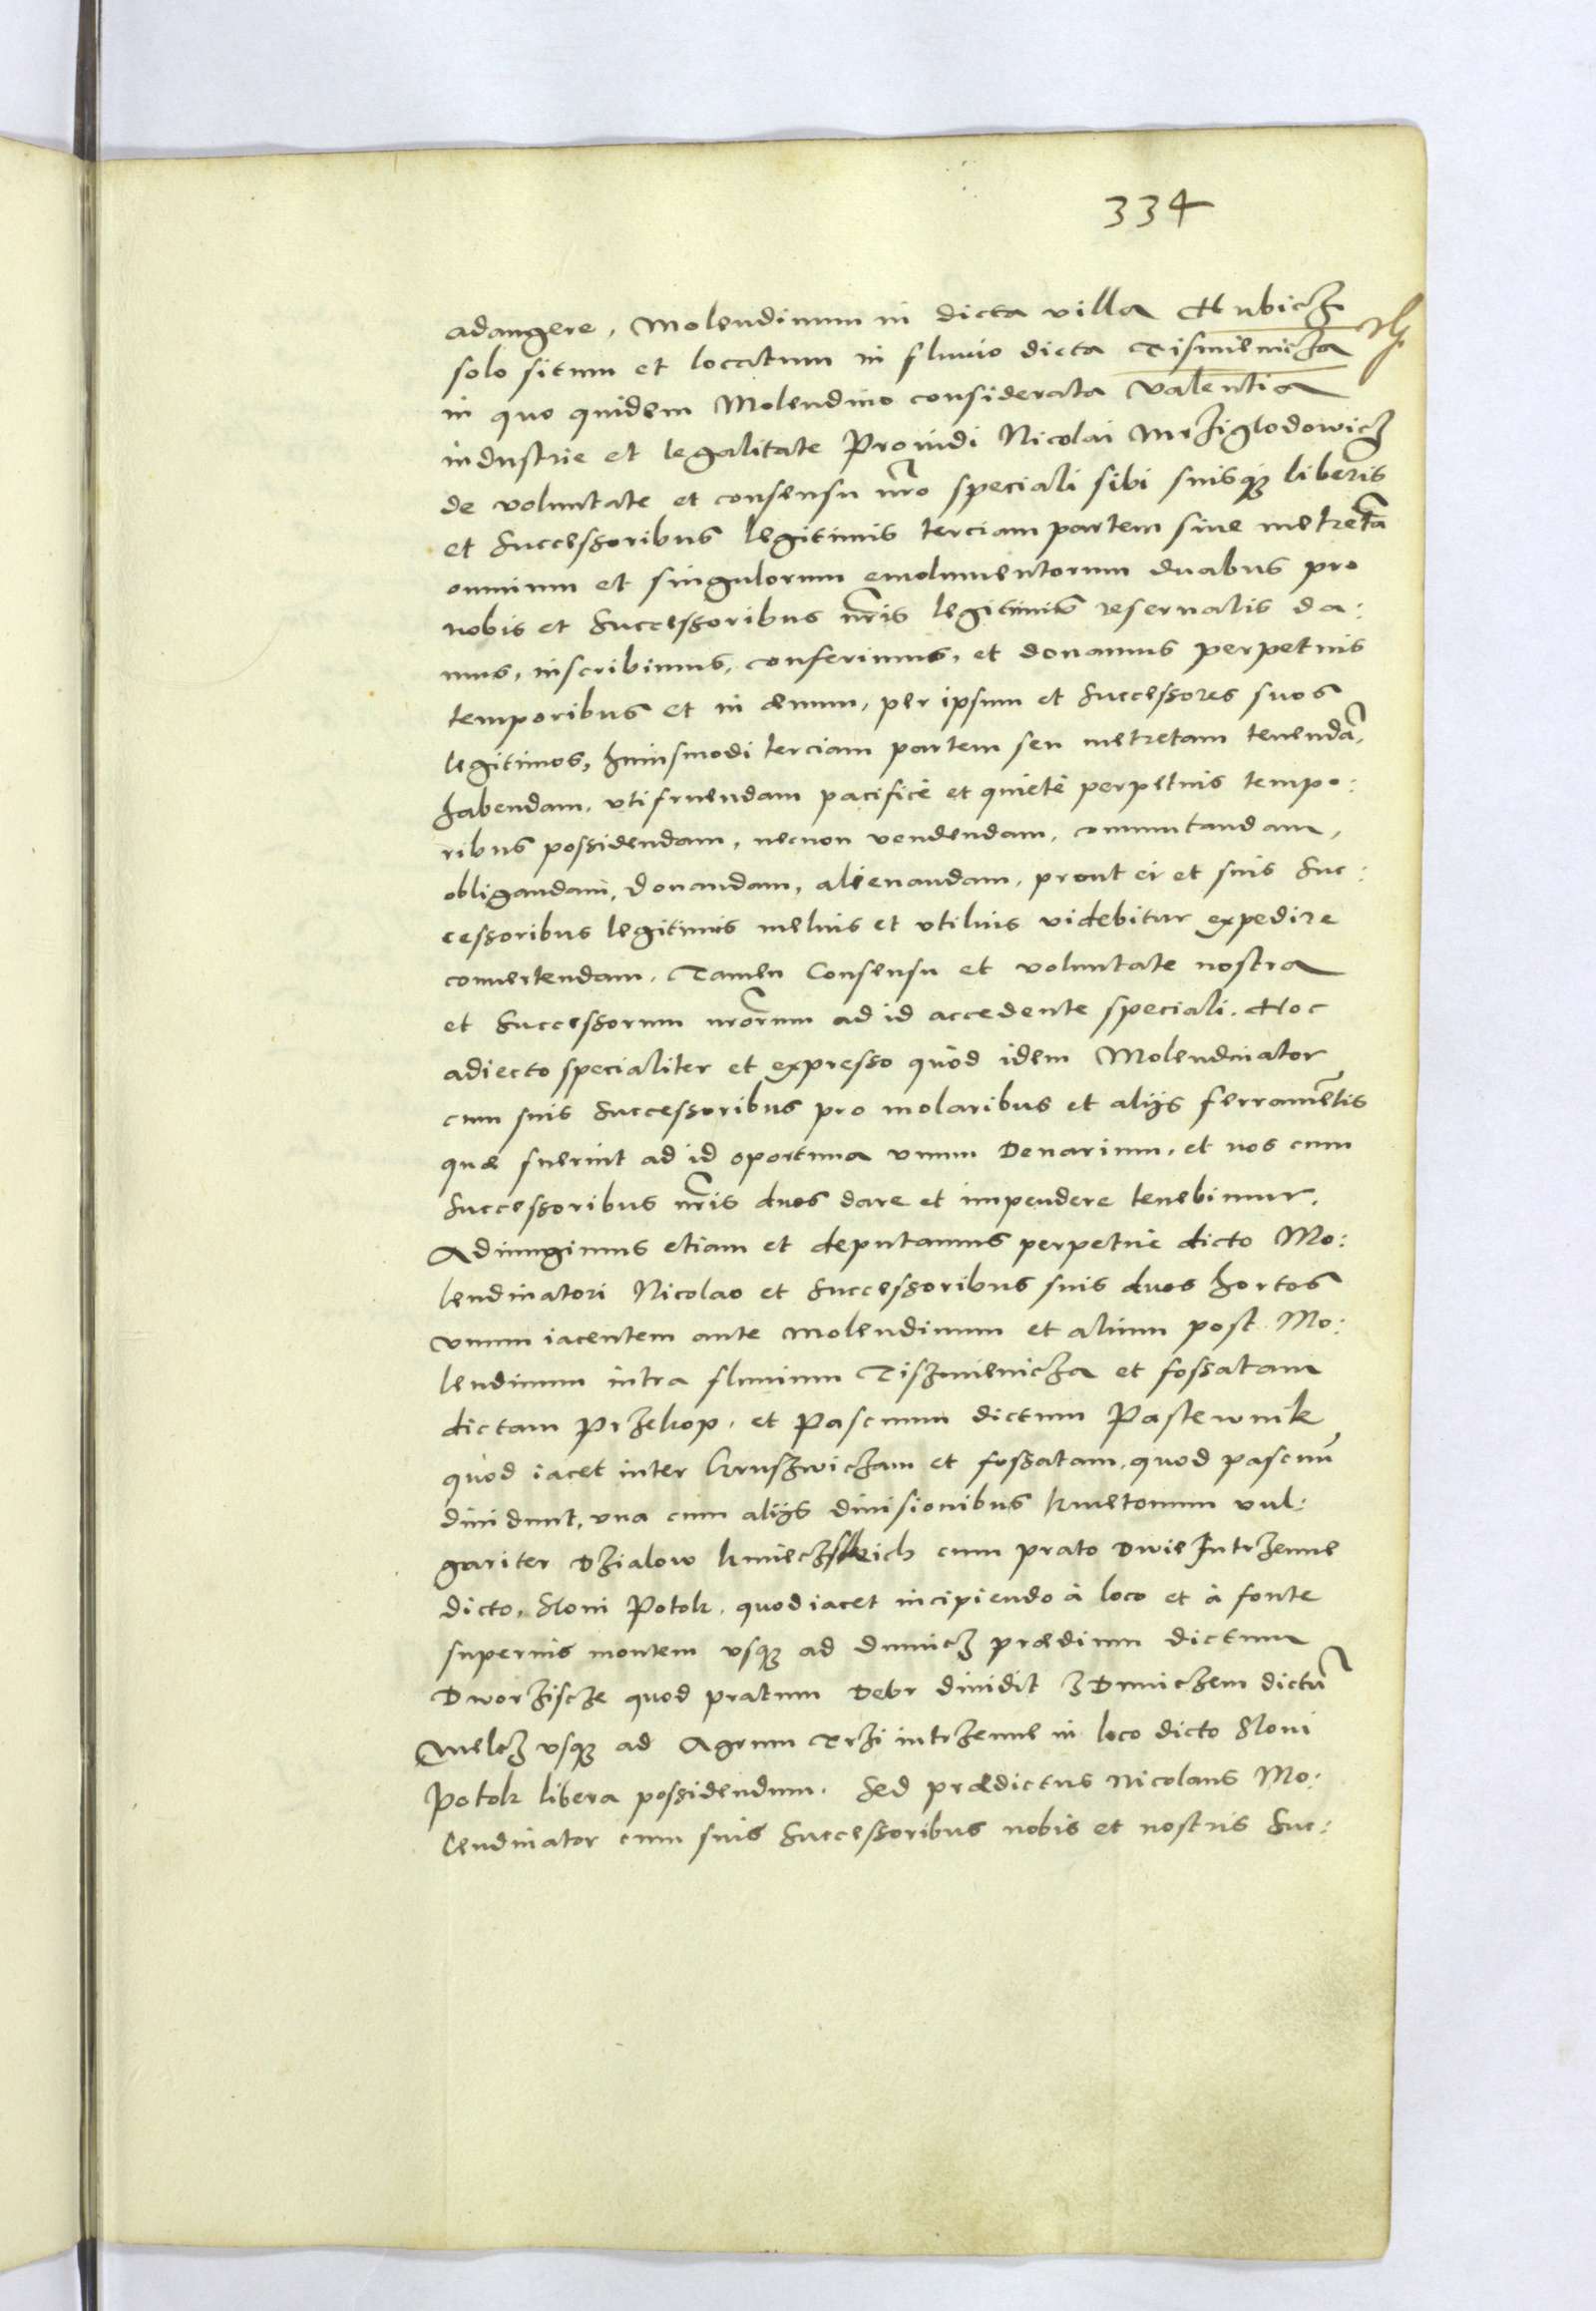 334
adangere, Molendinum in dicta villa Hubicz
solo situm et locatum in fluvio dicta Tismienicza
in quo quidem Molendino considerata valentia
industrie et legalitate Providi Nicolai Mrziglodowicz
de voluntate et consensu nro speciali sibi suisq; liberis
et Successoribus legitimis terciam partem sive metreta
omnium et singulorum emolumentorum duabus pro
nobis et Successoribus nris legitimis reservatis da:
mus, inscribimus, conferimus, et donamus perpetuis
temporibus et in aevum, per ipsum et Successores suos
legitimos, huiusmodi terciam partem seu metretam tenendã,
habendam, utifruendam pacificè et quietè perpetuis tempo:
ribus possidendam, necnon vendendam, comutandam,
obligandam, donandam, alienandam, prout ei et suis Suc:
cessoribus legitimis melius et utilius videbitur expedire
convertendam. Tamen Consensu et voluntate nostra
et Successorum nrorum ad id accedente speciali. Hoc
adiecto specialiter et expresso quòd idem Molendinator
cum suis Successoribus pro molaribus et aliis ferrametis
quae fuerint ad id oportuna unum Denarium, et nos cum
Successoribus nris duos dare et impendere tenebimur.
Adiungimus etiam et deputamus perpetuè dicto Mo:
lendinatori Nicolao et Successoribus suis duos hortos
unum iacentem ante molendinum et alium post Mo:
lendinum intra fluvium Tiszmienicza et fossatam
dictam Przekop, et Pascuum dictum Pastewnik
quòd iacet inter Kruszwiczam et fossatam, quod pascuũ
dividunt, una cum aliis divisionibus kmetonum vul:
gariter Dzialow kmieczskich cum prato Dwie Jutrzenne
dicto, Sloni Potok, quod iacet incipiendo à loco et à fonte
supernis montem usq; ad Dunicz praedium dictum
Dworziscze quod pratum Debr dividit z Duniczem dictũ
Mielcz usq; ad Agrum Trzi iutrzenne in loco dicto Sloni
Potok libera possidendum. Sed praedictus Nicolaus Mo:
lendinator cum suis Successoribus nobis et nostris Suc: